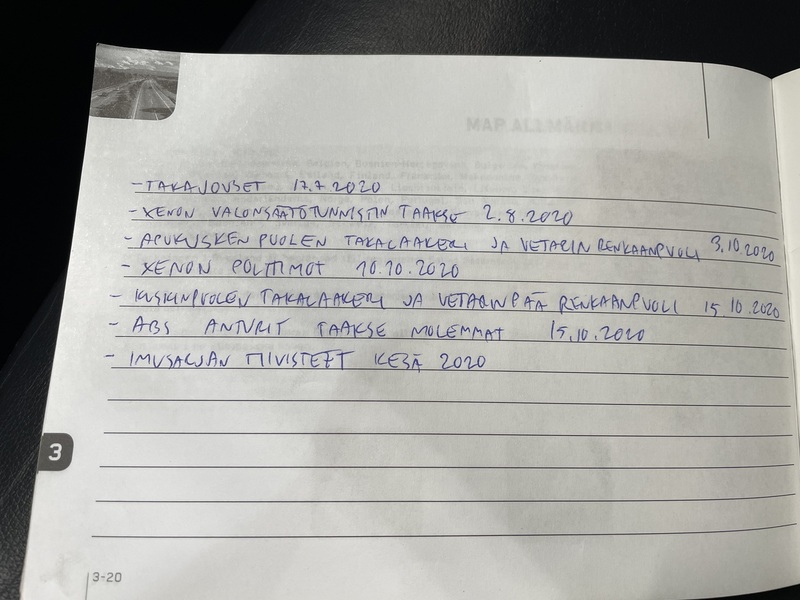 - TAKAJOUSET 17.7 2020
- XENON VALONSÄÄTÖTUNNISTIN TAAKSE 2.8.2020
- APUKUSKEN PUOLEN TAKALAAKERI JA VETARIN RENKAANPUOLI 9.10.2020
- XENON POLTTIMOT 10.10.2020
- KUSKINPUOLEN TAKALAAKERI JA VETARINPÄÄ RENKAANPUOLI 15.10.2020
- ABS ANTURIT TAAKSE MOLEMMAT 15.10.2020
- IMUSARJAN TIIVISTEET KESÄ 2020
3
3-20